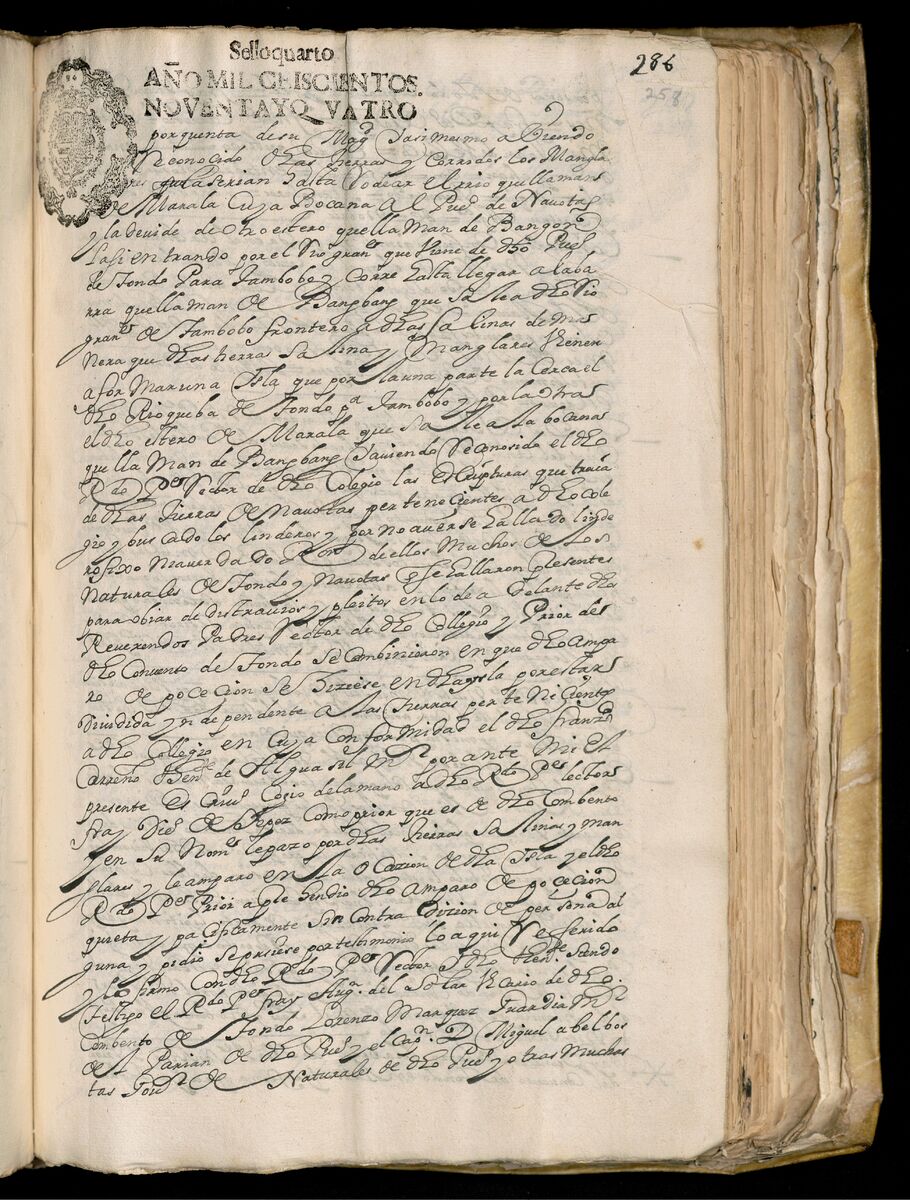 286
258
Sello quarto
AÑO MIL CEISCIENTOS.
NOVENTAYQVATRO
por quenta de su Magd Y asi mesmo a Biendo
Reconocido dhas tierras y Corrido los Mangla
res hasta Rodear el rio que llaman
de Marala Cuya Bocana al Pueo de Navotas
y la devide de otro estero que llaman de Bangon
y asi entrando por el Rio grande que Viene de dho Pueo
de Tondo Para Tambobo y Corre hasta llegar a la ba
rra que llaman de Bangbang que Sale a dho Rio
grande de Tambobo frontero a dhas Salinas de ma
nera que dhas tierras salinas y Manglares Vienen
a formar una Isla que por la una parte la Cerca el
dho Rio que ba de Tondo pa Tambobo y por la otra
el dho estero de Marala que Sale a la bocana
que llaman de Bangbang Y aviendo Reconosido el dho
Rdo Pe Rector de dho Colegio las Escripturas que traia
de dhas Tierras de Navotas pertenecientes a dho cole
gio y buscado los linderos y por no averse hallado linde
ro fixo ni averdado de ellos Muchos de los
Naturales de Tondo y Navotas que se hallaron presentes
para obiar de disturvios y pleitos en lo de a Delante dhos
Reverendos Padres Rector de dho Collegio y Prior de
dho Convento de Tondo se Combinieron en que dho ampa
ro de pocecion Se Hiziese en dha ysla por estar
Dividida y ndependente a las tierras pertenecientes
a dho Collegio en Cuya Conformidad el dho Franco
Carreño Thene de Alguasil Mor por ante Mi el
presente Escrivo Cogio de la mano a dho Rdo Pe lector
fray Diego de Yepez Como prior que es de dho Combento
y en Su Nome le pazo por dhas tierras Salinas y man
glares y le amparo en la Ocazion de dha Isla y el dho
Rdo Pe Prior aprehendio dho amparo de pocecion
quieta y pacificamente Sin Contradizion de persona al
guna y pidio se pusiese por testimonio lo aqui Referido
y lo firmo con dho Rdo Pe Rector Y dho Thene Siendo
Testigo el Rdo Pe fray Augn del Solar Vicario de dho
Combento de Tondo Lorenzo Marquez Guardia Mor
de el Parian de dho Pueo y el Capn D Miguel abelbos
tas Govor de Naturales de dho Pueo y otras Muchas